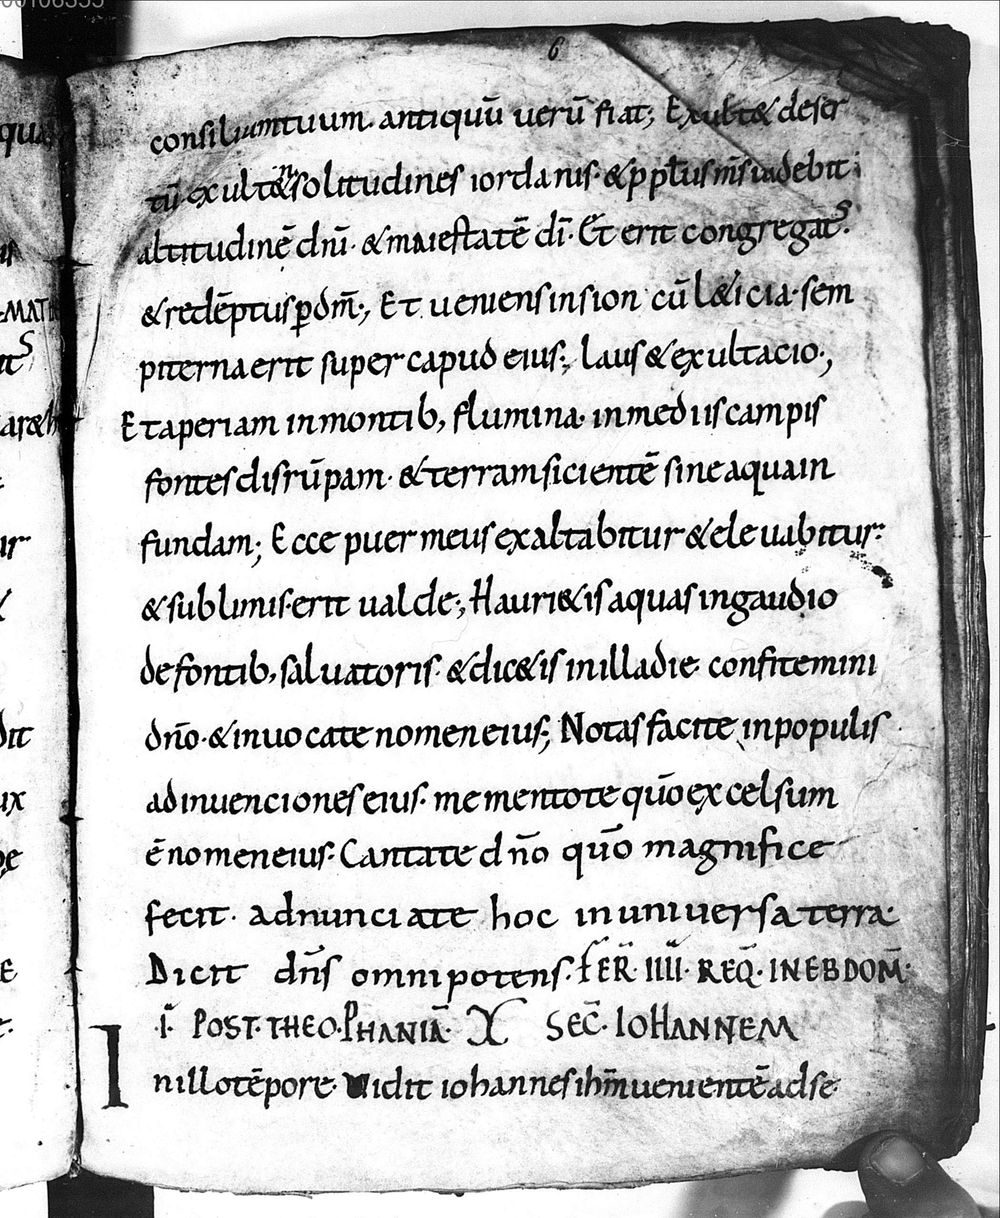 6
consilium tuum. antiquū uerū fiat; Exult& deser
tū. exult& solitudines iordanis. & pplus m̄s uidebit
altitudinē dn̄i. & maiestatē dī. Et erit congregat⁹.
& redēptus ꝑ dm̄;, Et ueniens in sion cū l&icia. sem
piterna erit super capud eius;, laus & exultacio;,
Et aperiam in montib, flumina. in mediis campis
fontes disrūpam. & terram sicientē sine aqua in
fundam; Ecce puer meus exaltabitur & eleuabitur:
& sublimis. erit ualde;, Hauri&is aquas in gaudio
de fontib, saluatoris. & dic&is in illa die. confitemini
dn̄o. & inuocate nomen eius;, Notas facite in populis
adinuenciones eius. mementote quō excelsum
ē nomen eius. Cantate dn̄o quō magnifice
fecit. adnunciate hoc in uniuersa terra.
Dicit dn̄s omnipotens. FER̄ IIII. REQ̄. IN EBDOM̄.
.Ī. POST. THEOPHANIĀ. X SEC̄. IOHANNEM
In illo tēpore. Uidit iohannes ihm̄ uenientē ad se